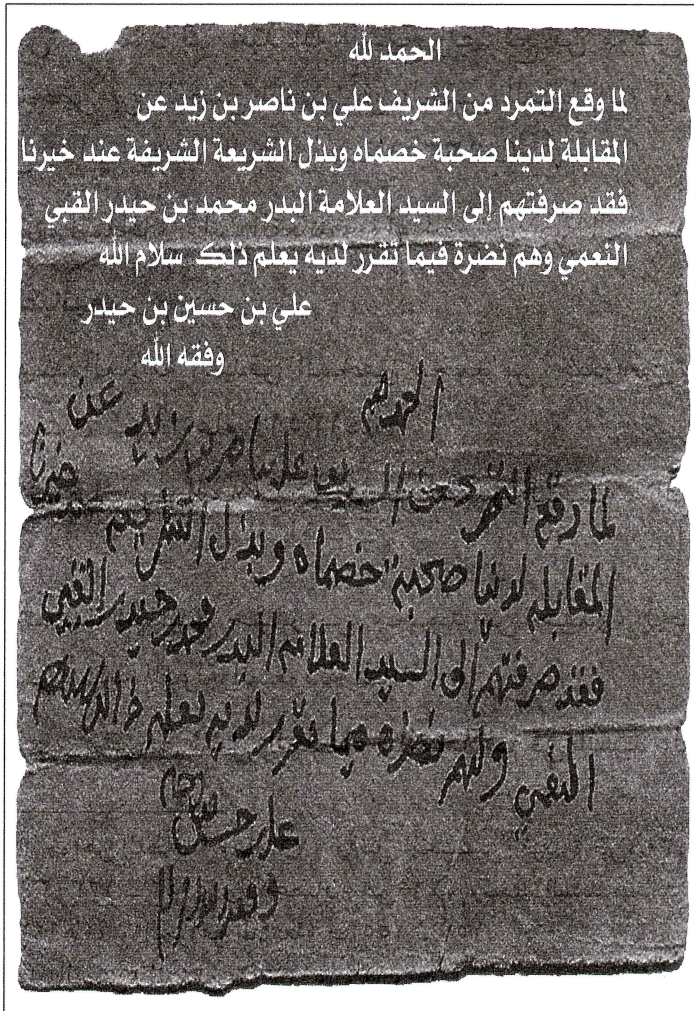 الحمد لله
لما وقع التمرد من الشريف علي بن ناصر بن زيد عن
المقابلة لدينا صحبة خصماه وبذل الشريعة الشريفة عند خيرنا
فقد صرفتهم إلى السيد العلامة البدر محمد بن حيدر القبي
النعمي وهم نضرة فيما تقرر لديه يعلم ذلك سلام الله
علي بن حسين بن حيدر
وفقه الله
الحمد لله
لما وقع التمرد من الشريف علي بن ناصر بن زيد عن
المقابله لدينا صحبة خصماه وبذل الشريعه
فقد صرفتهم الى السيد العلامه البدر محمد بن حيدر القبي
النعمي ولهم نضره فيما تقرر لديه يعلم ذلك
علي بن حسين بن حيدر
وفقه الله